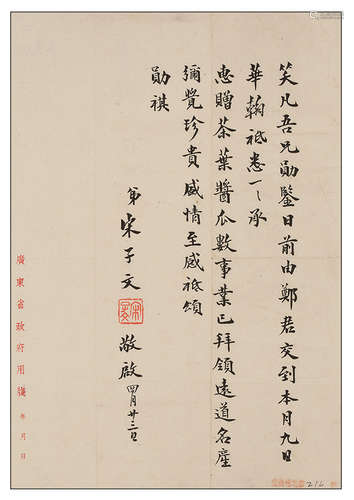 笑凡吾兄勛鑒日前由鄭君交到本月九日
華翰祗悉一一承
惠贈茶葉醬瓜數事業已拜領遠道名產
彌覺珍貴盛情至感祗頌
勛祺
弟宋子文
敬啟四月廿三日
廣東省政府用箋 年 月 日
216